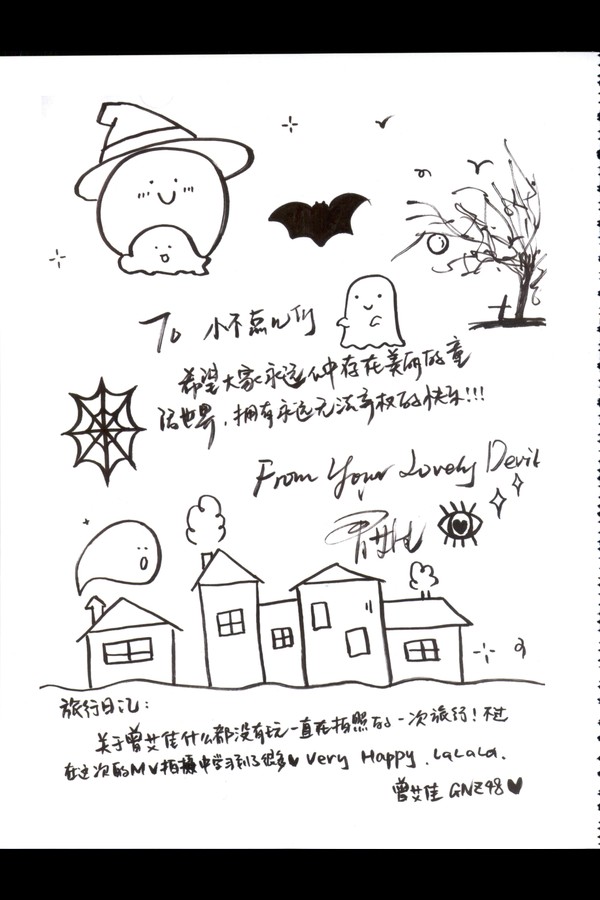 To 小不点儿们
希望大家永远心中存在美丽的童
话世界，拥有永远无法弃权的快乐!!!
From Your Lovely Devil
曾艾佳
旅行日记：
关于曾艾佳什么都没有玩一直在拍照的一次旅行！不过
在这次的MV拍摄中学习到了很多♥ Very Happy . LaLaLa.
曾艾佳 GNZ48♥